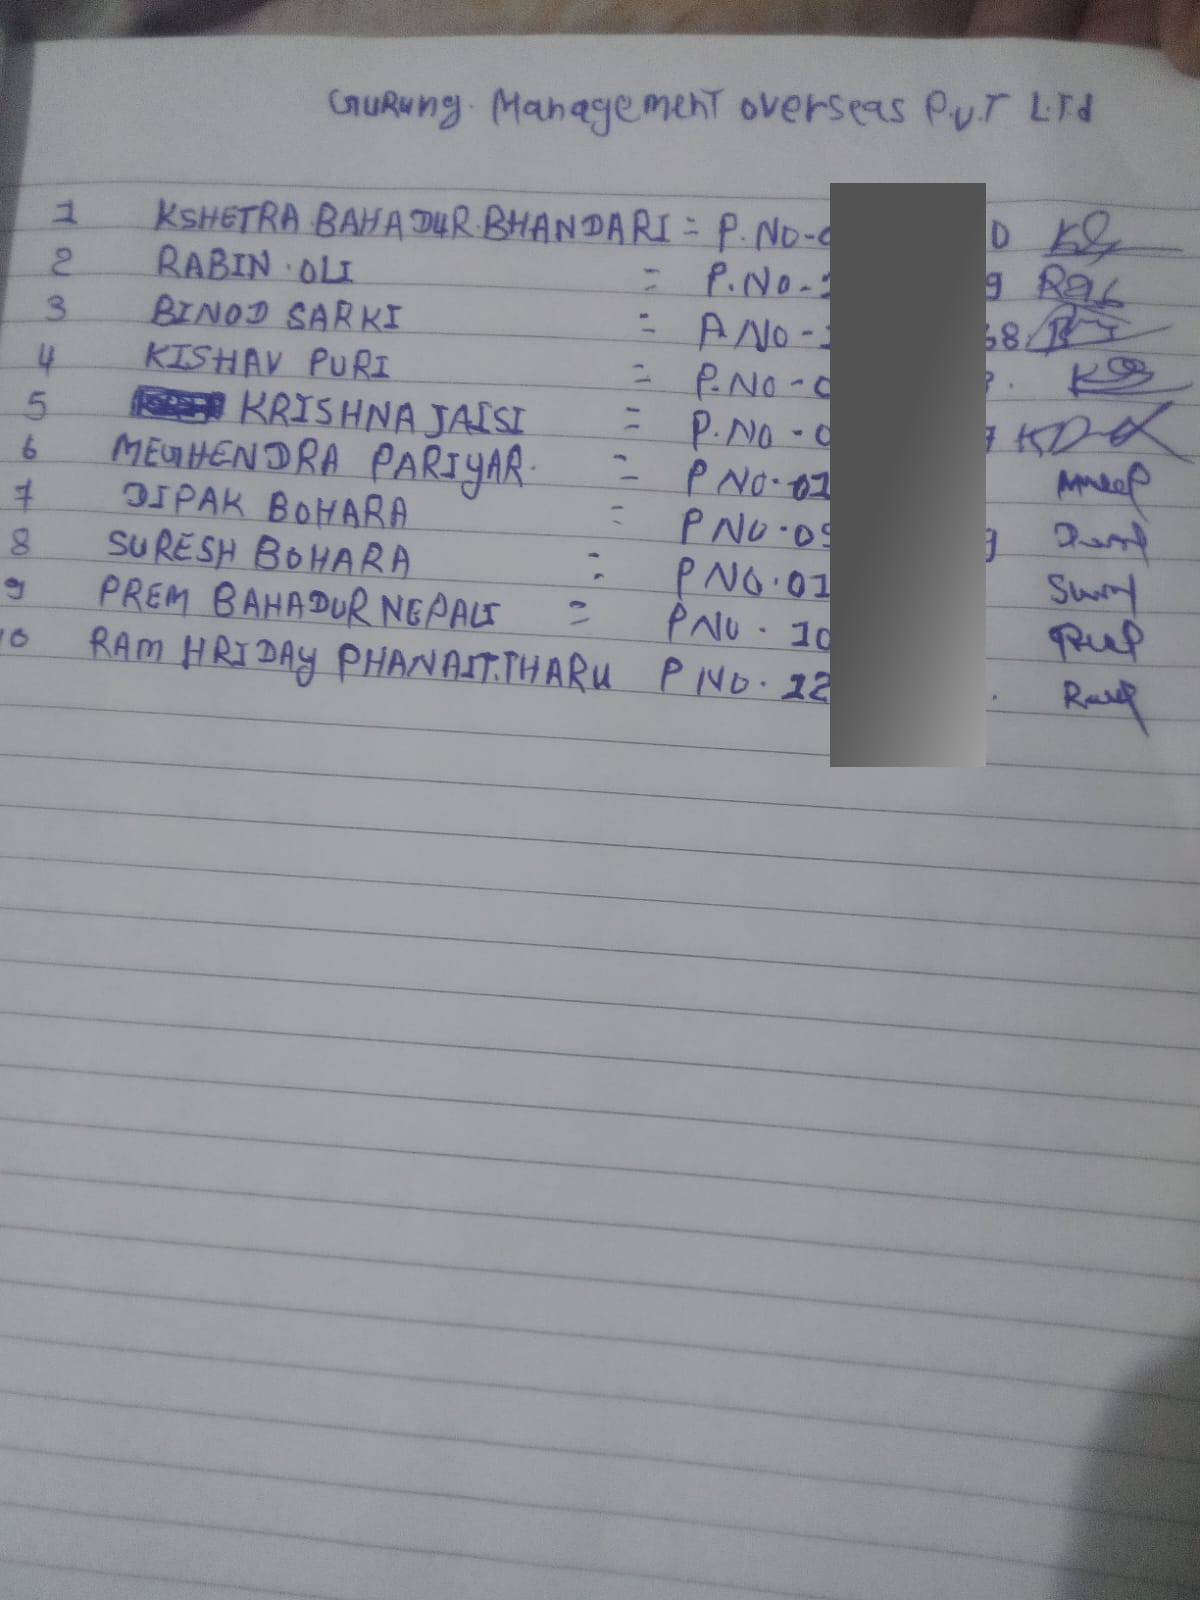 Gurung. Management overseas P.V.T L.T.d
1 KSHETRA.BAHADUR.BHANDARI = P.NO-0 0
2 RABIN.OLI = P.NO-1 9
3 BINOD SARKI = P.NO-1 68.
4 KISHAV PURI = P.NO-0
5 KRISHNA JAISI = P.NO-0 7
6 MEGHENDRA PARIYAR. = P NO.01
7 DIPAK BOHARA = P NO.09 9
8 SURESH BOHARA = P NO.01
9 PREM BAHADUR NEPALI = P NO.10
10 RAM HRIDAY PHANAIT.THARU P NO.12